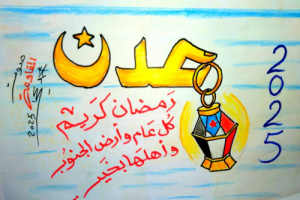 عدن
رمضان كريم
كل عام وأرض الجنوب
وأهلها بخير
2025
صوت
المقاومة
2025